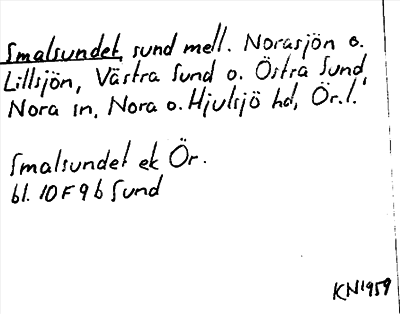 Smalsundet, sund mell. Norasjön o.
Lillsjön, Västra Sund o. Östra Sund,
Nora sn, Nora o. Hjulsjö hd, Ör.l.
Smalsundet ek Ör.
bl. 10F9b Sund
KN1959